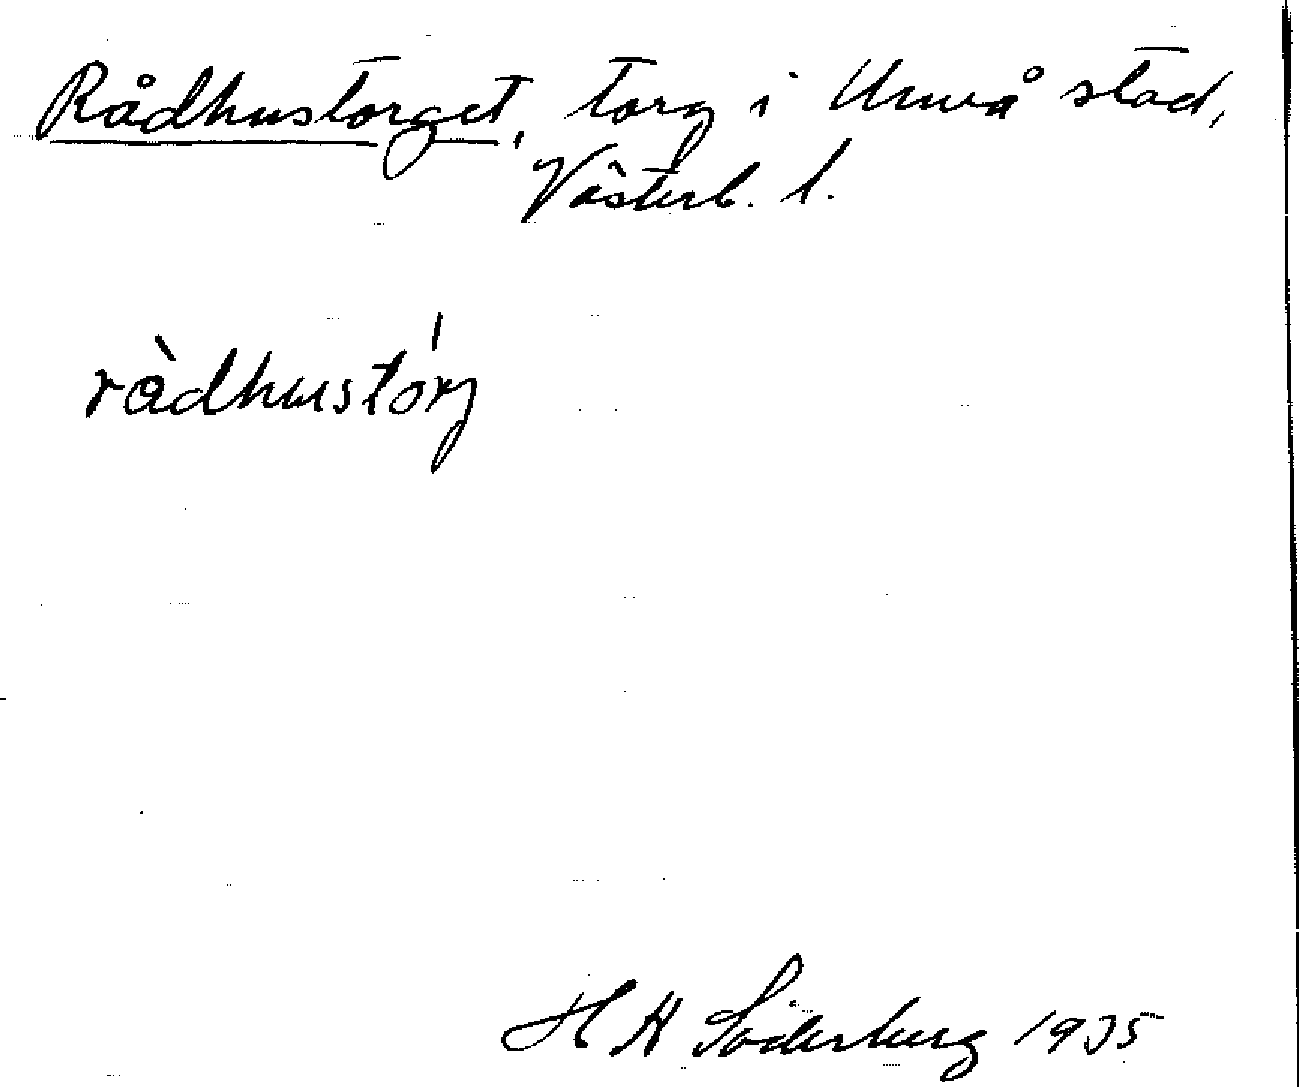 Rådhustorget, torg i Umeå stad,
Västerb. l.
ràdhustórg
H A Söderberg 1935